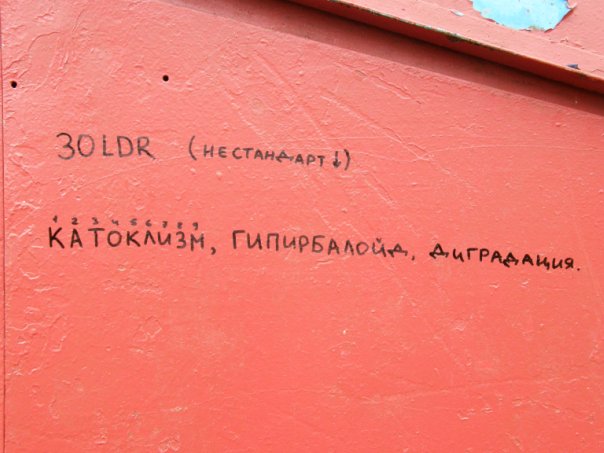 30LDR (НЕСТАНДАРТ↓)
1 2 3 4 5 6 7 8 9
КАТОКЛИЗМ, ГИПИРБАЛОЙД, ДИГРАДАЦИЯ.